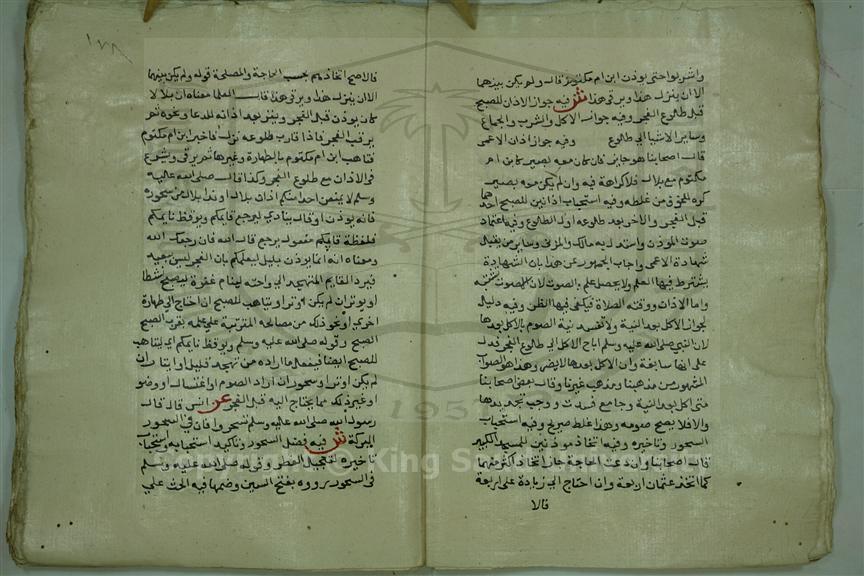 واشربوا حتى يوذن ابن ام مكتوم قال ولم يكن بينهما
الا ان ينزل هذا ويرقى هذا ش فيه جواز الاذان للصبح
قبل طلوع الفجر وفيه جواز الاكل والشرب والجماع
وساير الاشيا الي طلوع وفيه جواز اذان الاعمى
قال اصحابنا هو جايز فان كان معه بصير كابن ام
مكتوم مع بلال فلا كراهة فيه وان لم يكن معه بصير
كره للخوف من غلطه وفيه استحباب اذانين للصبح احدهما
قبل الفجر والاخر بعد طلوعه اول الطلوع وفيه اعتماد
صوت الموذن واستدل به مالك والمزني وساير من يقبل
شهادة الاعمى واجاب الجمهور عن هذا بان الشهادة
يشترط فيها العلم ولا يحصل علم بالصوت لان الصوت يشتبه
واما الاذان ووقت الصلاة فيكفي فيها الظن وفيه دليل
لجواز الاكل بعد النية ولا تفسد نية الصوم بالاكل بعدها
لان النبي صلى الله عليه وسلم اباح الاكل الي طلوع الفجر فدل
على انها سابقة وان الاكل بعدها لا يضر وهذا هو الصواب
المشهور من مذهبنا ومذهب غيرنا وقال بعض اصحابنا
متى اكل بعد النية وجامع فسدت ووجب تجديدها
والا فلا يصح صومه وهذا غلط صريح وفيه استحباب
السحور وتاخيره وفيه اتخاذ موذنين للمسجد الكبير
قال اصحابنا وان دعت الحاجة جاز اتخاذ اكثر منهما
كما اتخذ عثمان اربعة وان احتاج الي زيادة على اربعة
فالا
فالاصح اتخاذهم بحسب الحاجة والمصلحة قوله ولم يكن بينهما
الا ان ينزل هذا ويرقى هذا قال العلما معناه ان بلالا
كان يوذن قبل الفجر ويتربص بعد اذانه للدعا ونحوه ثم
يرقب الفجر فاذا قارب طلوعه نزل فاخبر ابن ام مكتوم
فتاهب ابن ام مكتوم بالطهارة وغيرها ثم يرقى وشرع
في الاذان مع طلوع الفجر وكذا قال صلى الله عليه
وسلم لا يمنعن احدا منكم اذان بلال او ندا بلال من سحوره
فانه يوذن او قال ينادي ليرجع قايمكم ويوقظ نايمكم
فلفظة قايمكم مفعول يرجع قال الله فان رجعك الله
ومعناه انه انما يوذن بليل ليعلمكم بان الفجر ليس ببعيد
فيرد القايم المتهجد الي راحته لينام غفوة ليصبح نشطا
او يوتر ان لم يكن اوتر او يتاهب للصبح ان احتاج الي طهارة
اخرى او نحو ذلك من مصالحه المترتبة على علمه بقرب الصبح
الصبح وقوله صلى الله عليه وسلم ويوقظ نايمكم اي ليتاهب
للصبح ايضا فيفعل ما اراده من تهجد قليل او ايتار ان
لم يكن اوتر او سحور ان اراد الصوم او اغتسال او وضو
او غير ذلك مما يحتاج اليه قبل الفجر عن انس قال قال
رسول الله صلى الله عليه وسلم تسحروا فان في السحور
البركة ش فيه فضل السحور وتاكيد استحبابه واستحباب
تاخيره لتعجيل الفطر وقوله صلى الله عليه وسلم
في السحور رووه بفتح السين وضمها فيه الحث على
Copyright © King Saud University
1957